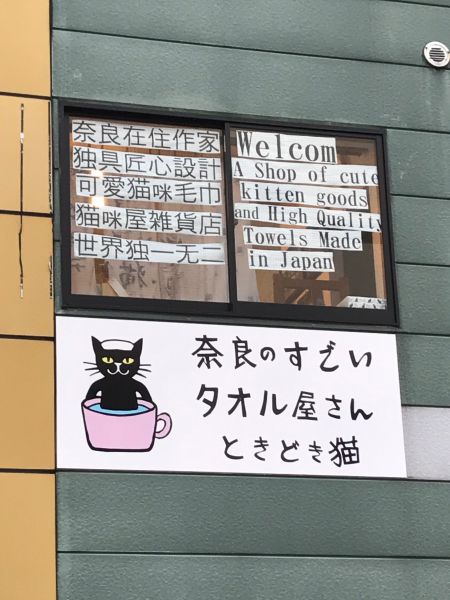 奈良在住作家
独具匠心設計
可愛猫咪毛巾
猫咪屋雑貨店
世界独一无二
Welcom
A Shop of cute
kitten goods
and High Quality
Towels Made
in Japan
奈良のすごい
タオル屋さん
ときどき猫